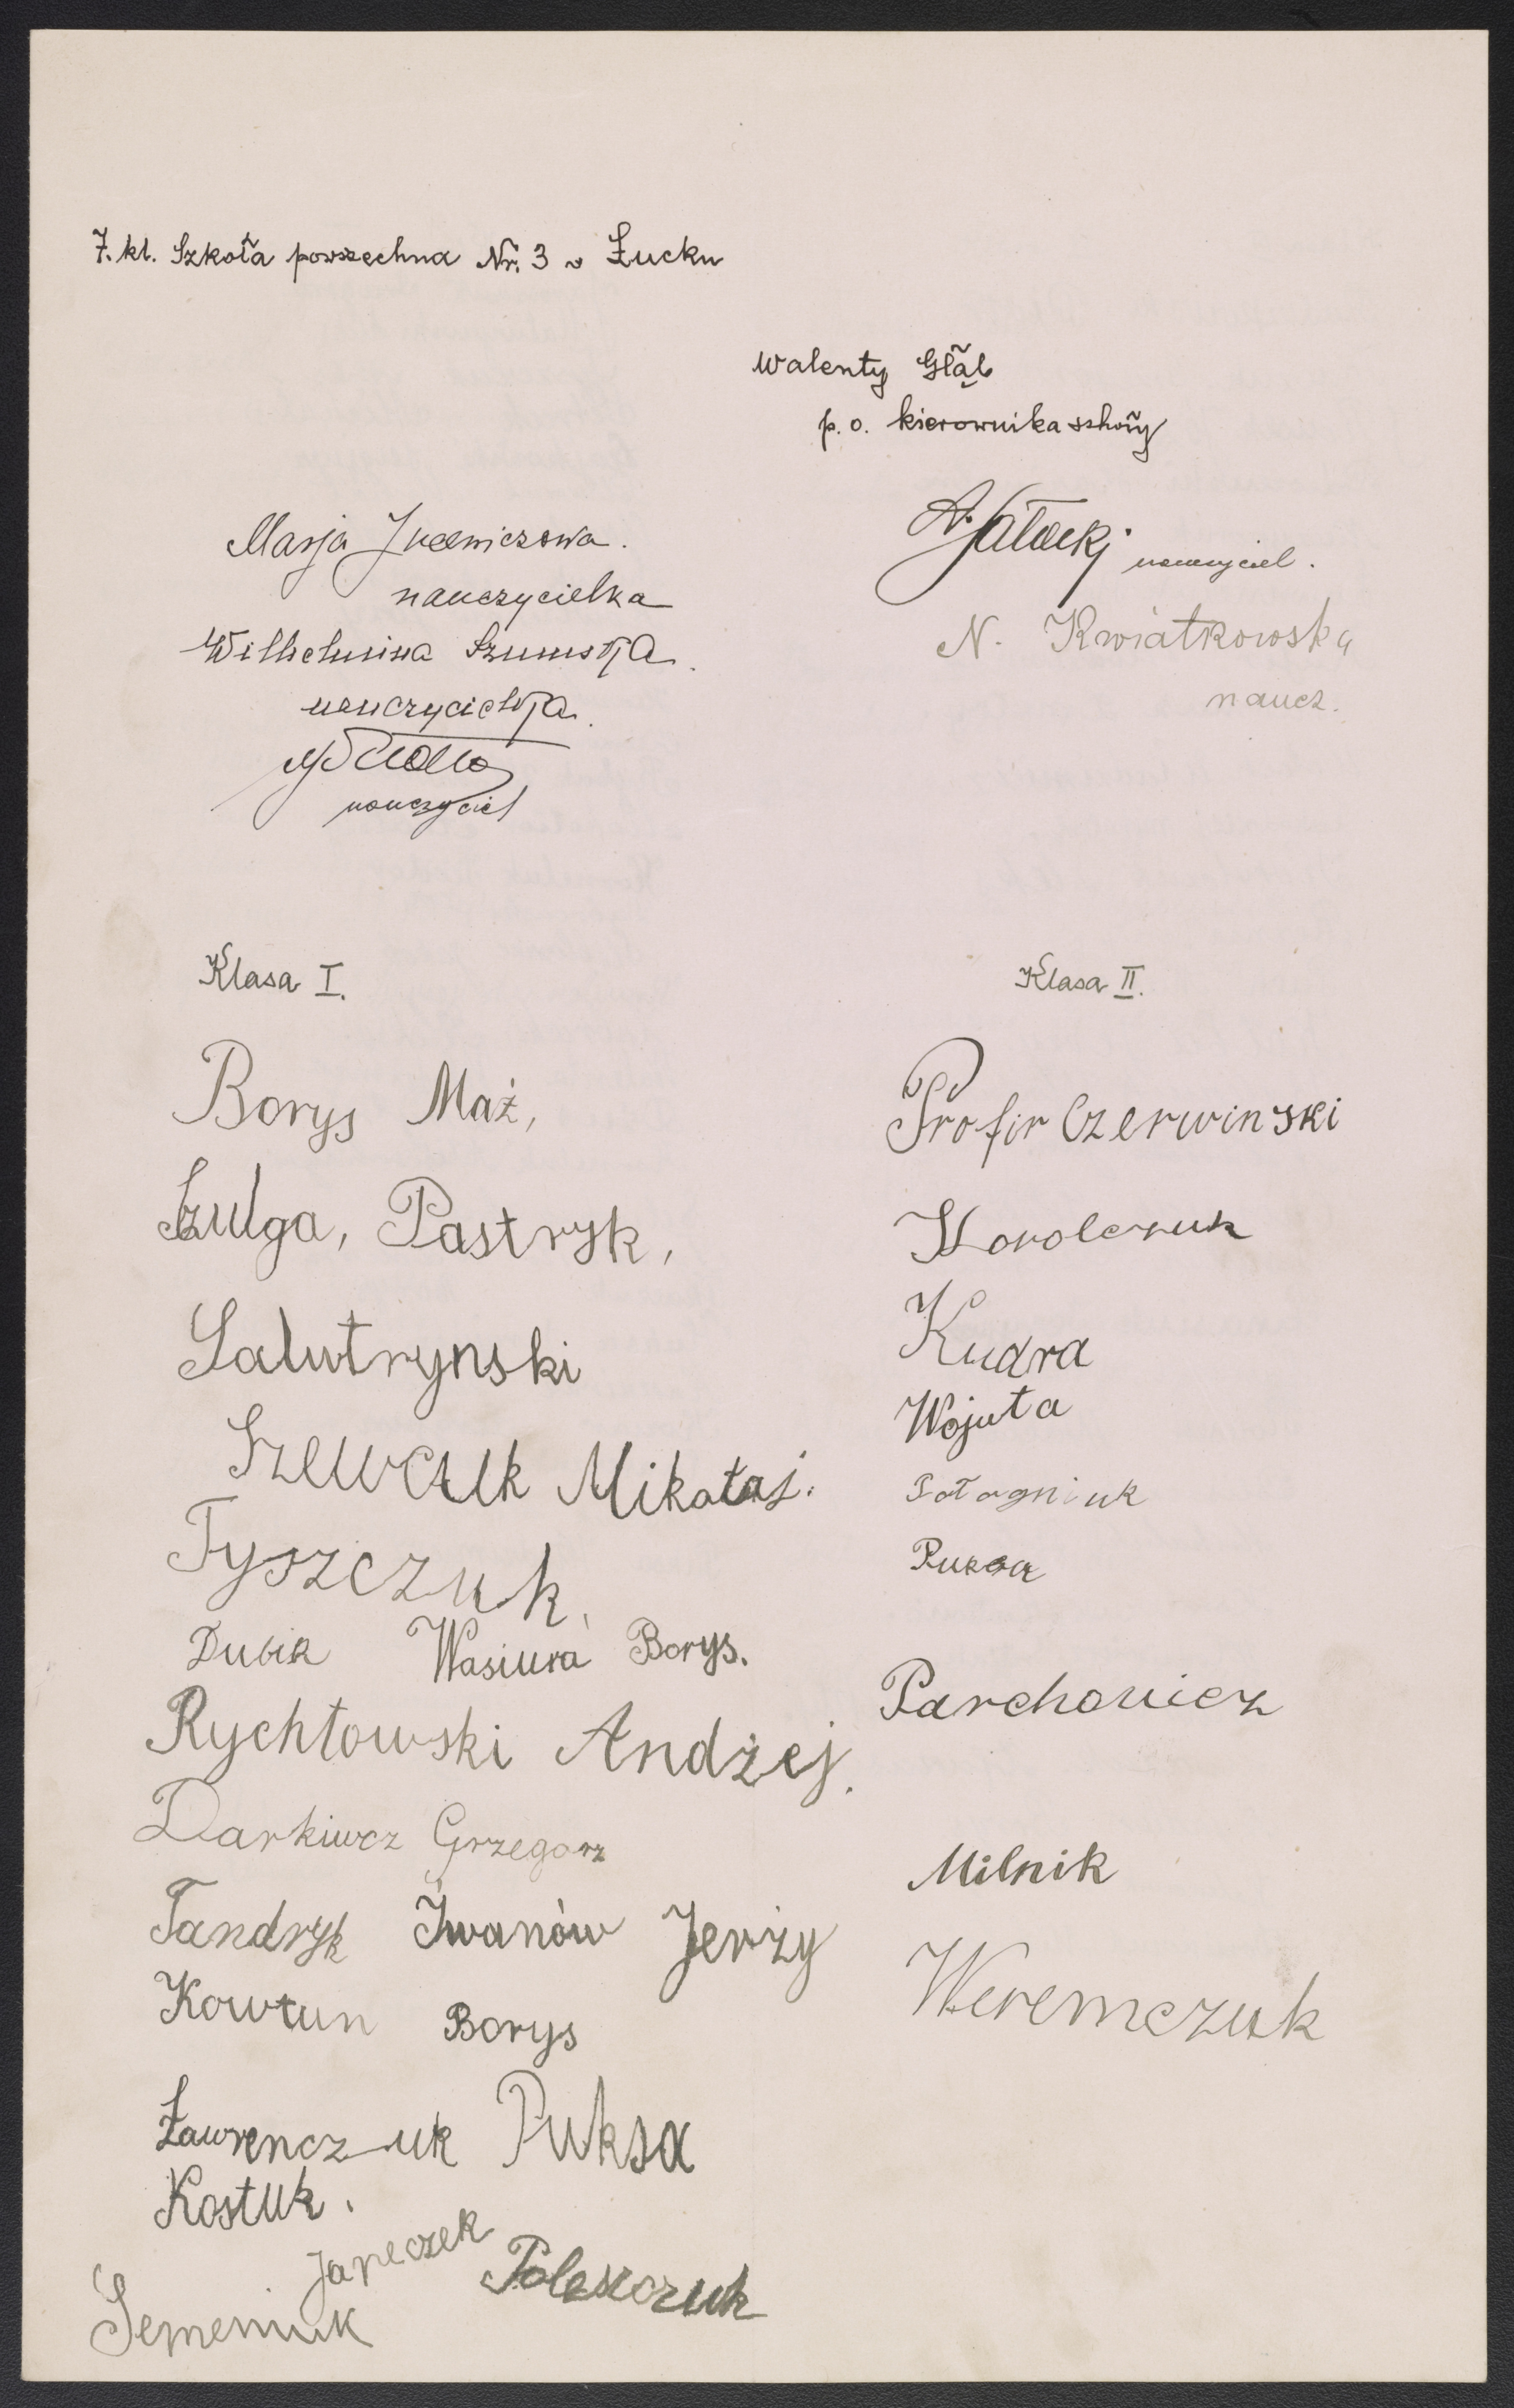 7. kl. Szkoła powszechna Nr. 3 w Łucku
Walenty Głąb
p. o. kierownika szkoły
Marja
nauczycielka
Wilhelmina Szumska.
nauczycielka.
nauczyciel
A. Sałacki nauczyciel.
N. Kwiatkowska
naucz.
Klasa I.
Borys Maź,
Szulga, Pastryk,
Salutrynski
Szewczuk Mikołaj.
Tyszczuk,
Dubik Wasiura Borys.
Rychłowski Andżej.
Darkiwcz Grzegorz
Tandryk Iwanów Jerzy
Kowtun Borys
Ławrenczuk Puksa
Kostuk.
Janeczek Poleszczuk
Semeniuk
Klasa II.
Profir Czerwinski
Korolczuk
Kudra
Wojuta
Potagniuk
Puksa
Parchonicz
Milnik
Weremczuk